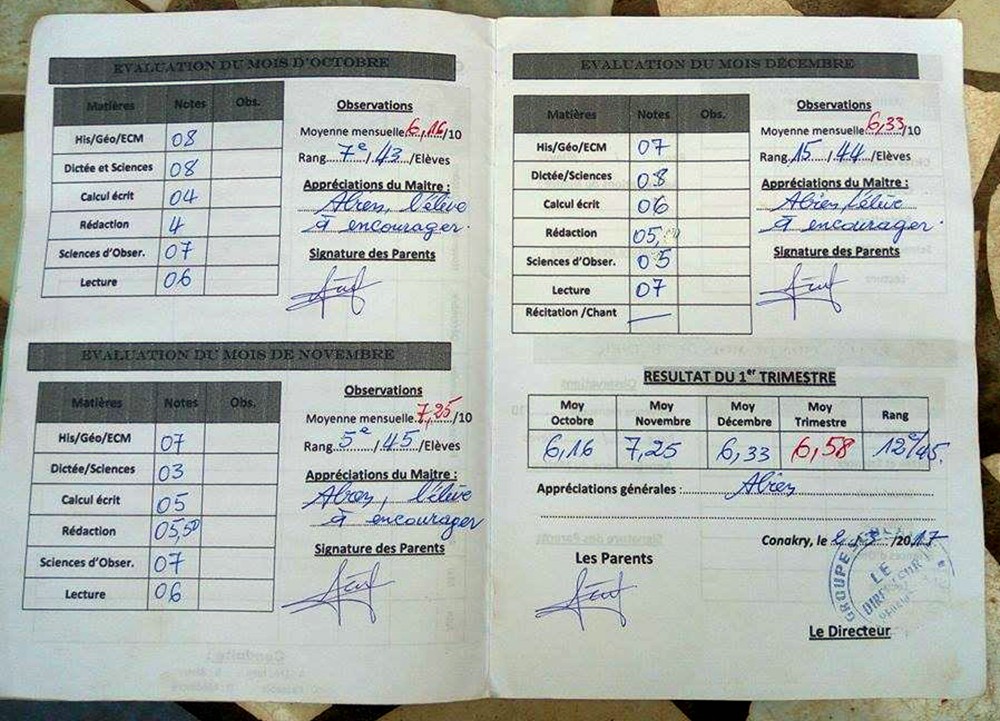 EVALUATION DU MOIS D'OCTOBRE
Matières Notes Obs.
His/Géo/ECM 08
Dictée et Sciences 08
Calcul écrit 04
Rédaction 4
Sciences d'Obser. 07
Lecture 06
Observations
Moyenne mensuelle 6,16/10
Rang 7e/43/Elèves
Appréciations du Maitre :
l'élève
à encourager.
Signature des Parents
EVALUATION DU MOIS DE NOVEMBRE
Matières Notes Obs.
His/Géo/ECM 07
Dictée/Sciences 03
Calcul écrit 05
Rédaction 05,50
Sciences d'Obser. 07
Lecture 06
Observations
Moyenne mensuelle 7,25/10
Rang 5e/45/Elèves
Appréciations du Maitre :
l'élève
à encourager
Signature des Parents
EVALUATION DU MOIS DÉCEMBRE
Matières Notes Obs.
His/Géo/ECM 07
Dictée/Sciences 08
Calcul écrit 06
Rédaction 05,
Sciences d'Obser. 05
Lecture 07
Récitation /Chant —
Observations
Moyenne mensuelle 6,33/10
Rang 15/44/Elèves
Appréciations du Maitre :
l'élève
à encourager.
Signature des Parents
RESULTAT DU 1er TRIMESTRE
Moy Octobre Moy Novembre Moy Décembre Moy Trimestre Rang
6,16 7,25 6,33 6,58 12e/45.
Appréciations générales :
Conakry, le /2017
Les Parents
GROUPE
LE
DIRECTEUR
Le Directeur